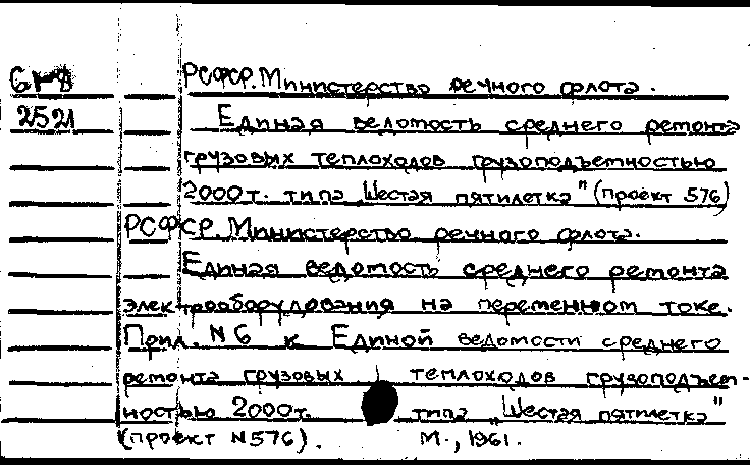 РСФСР. Министерство речного флота.
2521 Единая ведомость среднего ремонта
грузовых теплоходов грузоподъемностью
2000 т. типа „Шестая пятилетка" (проект 576)
РСФСР. Министерство речного флота.
Единая ведомость среднего ремонта
электрооборудования на переменном токе.
Прил. N 6 к Единой ведомости среднего
ремонта грузовых теплоходов грузоподъем-
ностью 2000 т. типа „Шестая пятилетка"
(проект N 576). М., 1961.